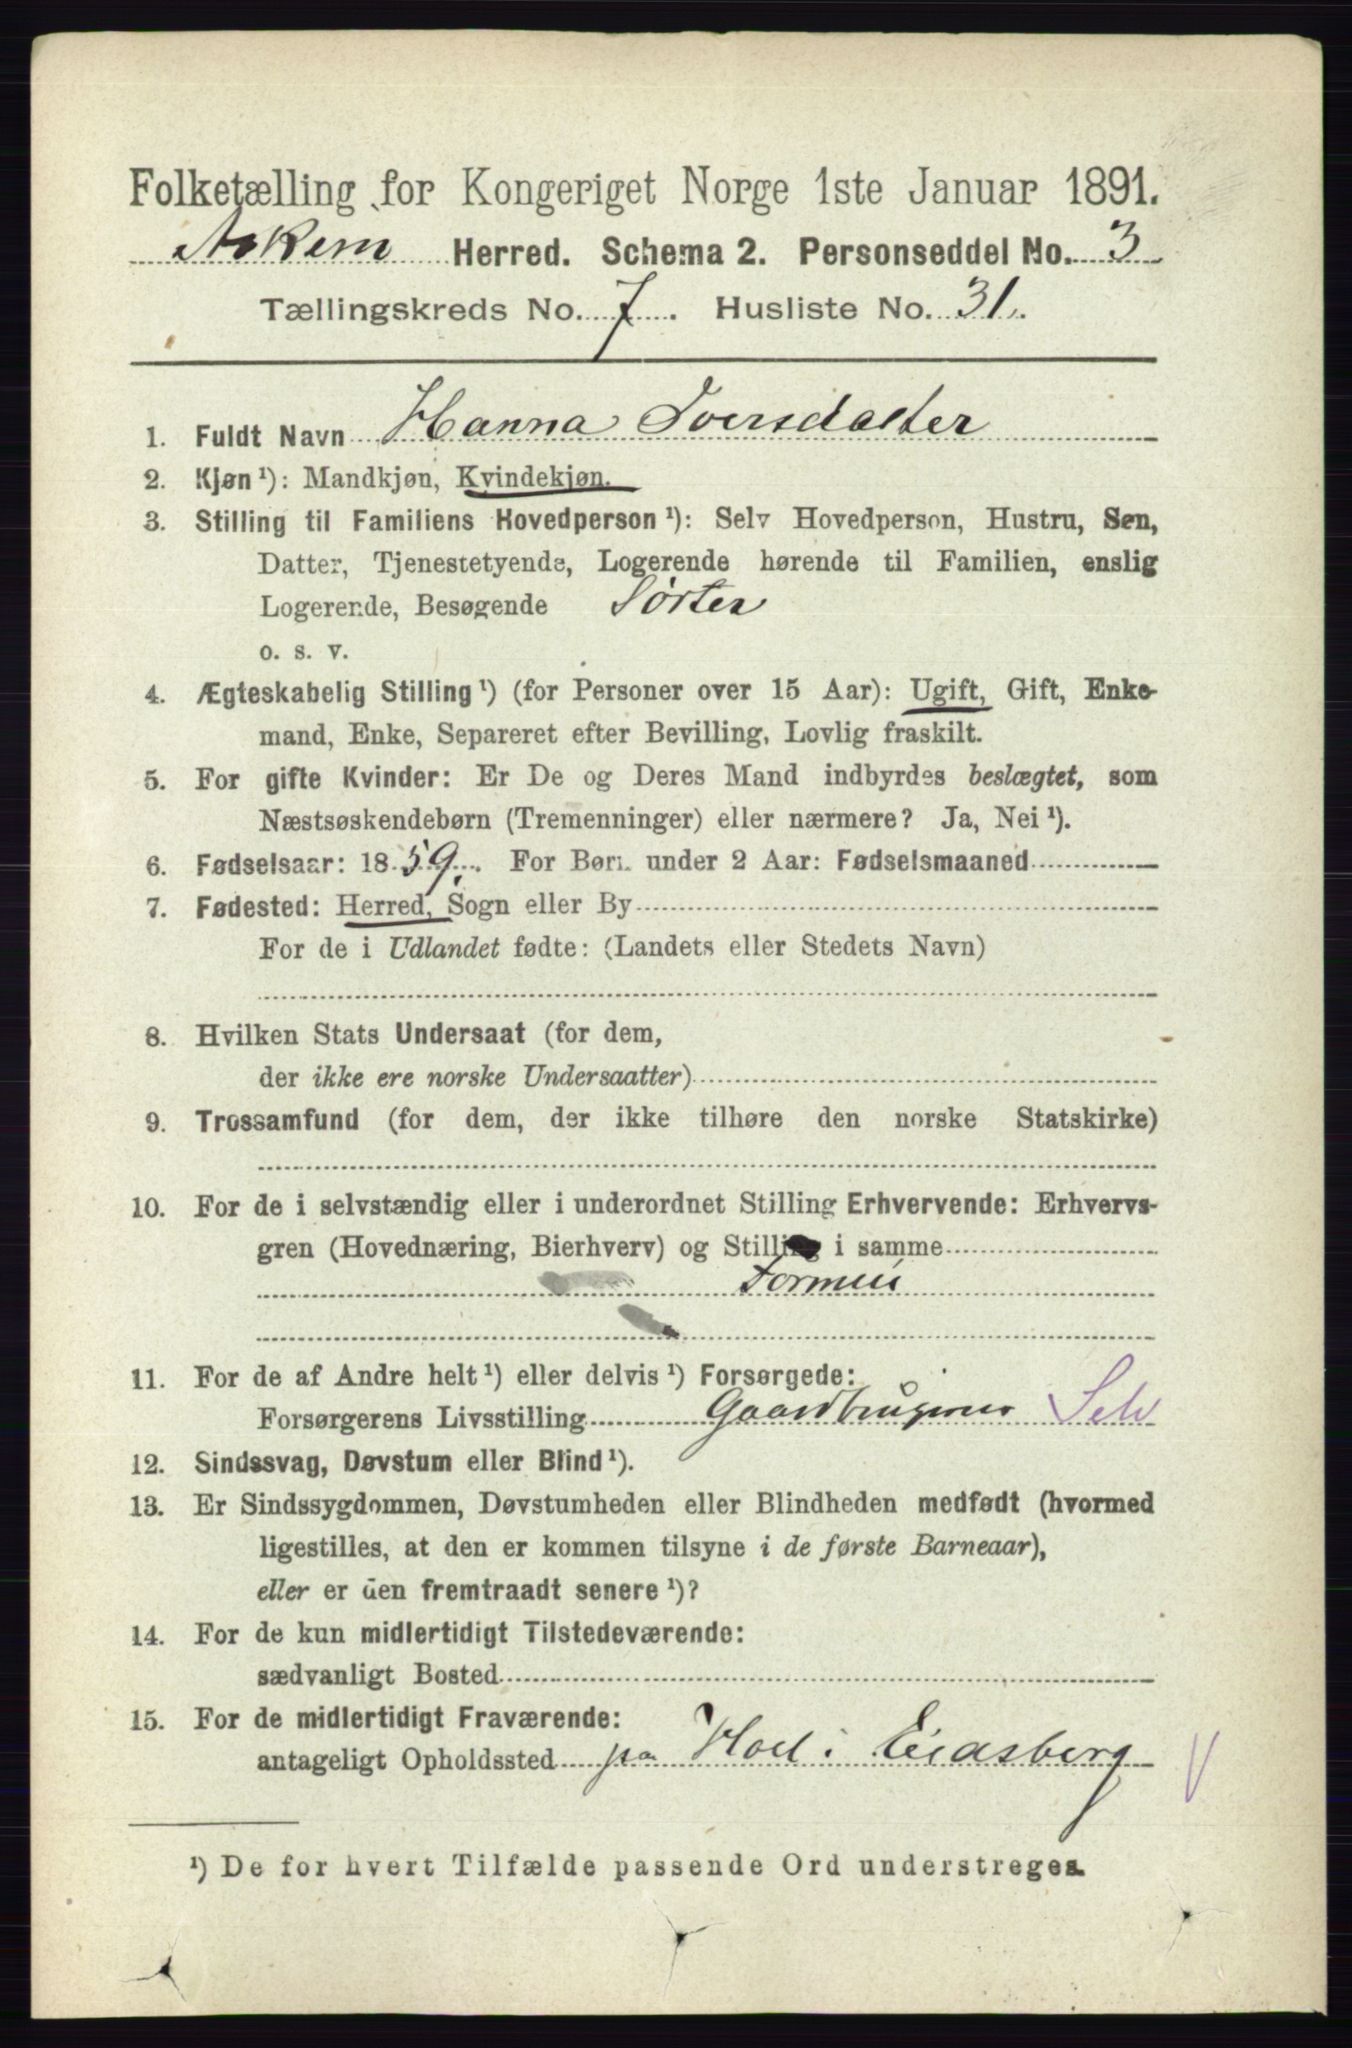 Folketælling for Kongeriget Norge 1ste Januar 1891.
Askim Herred. Schema 2. Personseddel No. 3
Tællingskreds No. 7. Husliste No. 31.
1. Fuldt Navn Hanna Iversdatter
2. Kjøn ¹): Mandkjøn, Kvindekjøn.
3. Stilling til Familiens Hovedperson ¹): Selv Hovedperson, Hustru, Søn,
Datter, Tjenestetyende, Logerende hørende til Familien, enslig
Logerende, Besøgende Søster
o. s. v.
4. Ægteskabelig Stilling ¹) (for Personer over 15 Aar): Ugift, Gift, Enke-
mand, Enke, Separeret efter Bevilling, Lovlig fraskilt.
5. For gifte Kvinder: Er De og Deres Mand indbyrdes beslægtet, som
Næstsøskendebørn (Tremenninger) eller nærmere? Ja, Nei ¹).
6. Fødselsaar: 1859. For Børn under 2 Aar: Fødselsmaaned
7. Fødested: Herred, Sogn eller By
For de i Udlandet fødte: (Landets eller Stedets Navn)
8. Hvilken Stats Undersaat (for dem,
der ikke ere norske Undersaatter)
9. Trossamfund (for dem, der ikke tilhøre den norske Statskirke)
10. For de i selvstændig eller i underordnet Stilling Erhvervende: Erhvervs-
gren (Hovednæring, Bierhverv) og Stilling i samme
11. For de af Andre helt ¹) eller delvis ¹) Forsørgede:
Forsørgerens Livsstilling Gaardbrugerer Selv
12. Sindssvag, Døvstum eller Blind ¹).
13. Er Sindssygdommen, Døvstumheden eller Blindheden medfødt (hvormed
ligestilles, at den er kommen tilsyne i de første Barneaar),
eller er den fremtraadt senere ¹)?
14. For de kun midlertidigt Tilstedeværende:
sædvanligt Bosted
15. For de midlertidigt Fraværende:
antageligt Opholdssted paa Hoel i Eidsberg V
¹) De for hvert Tilfælde passende Ord understreges.